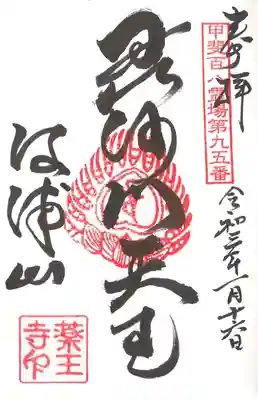 奉拝
甲斐百八霊場第九五番
令和三年一月十六日
毘沙門天王
河浦山
薬王
寺印